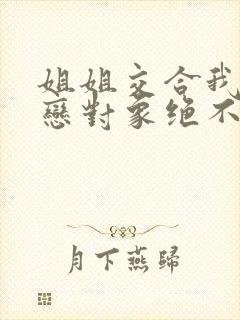 姐姐交合我
戀對象绝不
月下燕歸